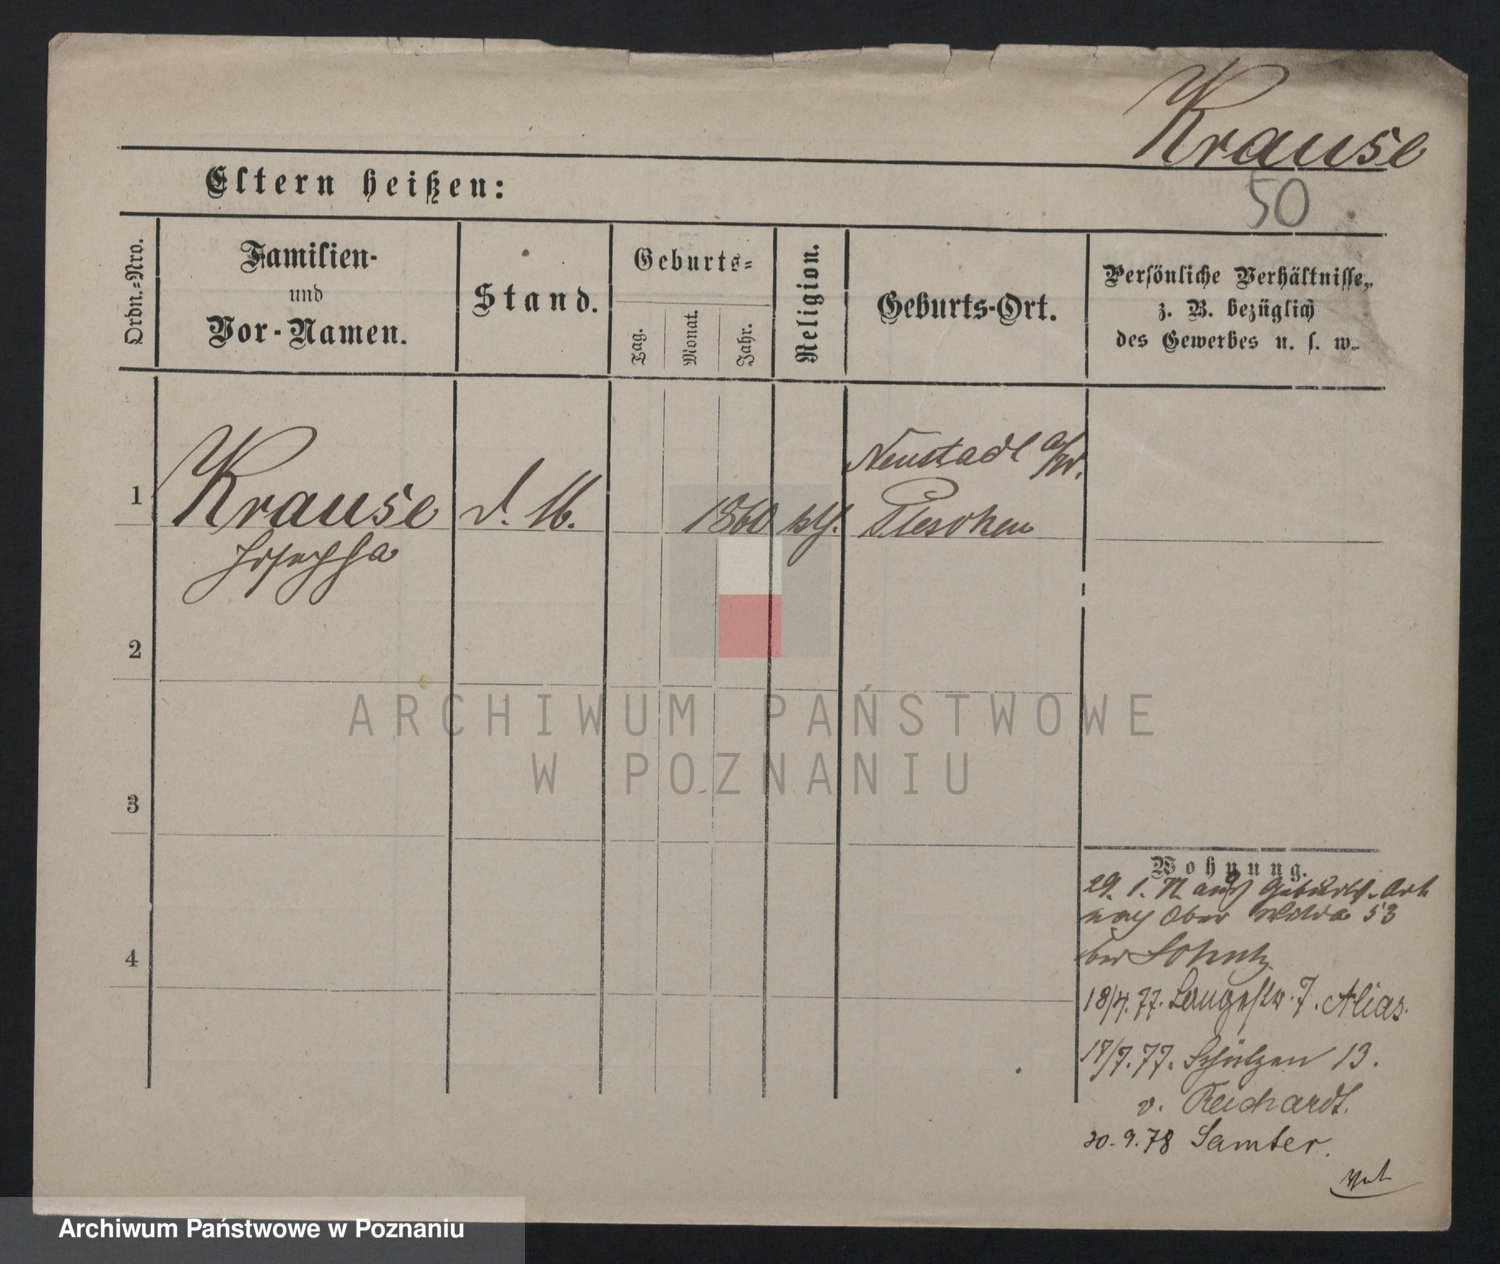 Krause
50
Eltern heißen:
Ordn.-Nro.
Familien-
und
Vor-Namen.
Stand.
Geburts-
Tag.
Monat.
Jahr.
Religion.
Geburts-Ort.
Persönliche Verhältnisse,
z. B. bezüglich
des Gewerbes u. s. w.
1
Krause
Josepha
d. M.
1860
kth.
Neustadt a/W.
Pleschen
2
3
4
Wohnung.
29. 1. 77 aus Geburts-Ort
nach Ober Wilda 53
bei
18/4. 77. Langestr. 7. Alias.
17/7. 77. Schützen 13.
v. Reichardt.
30. 9. 78 Samter.
ARCHIWUM PAŃSTWOWE
W POZNANIU
Archiwum Państwowe w Poznaniu